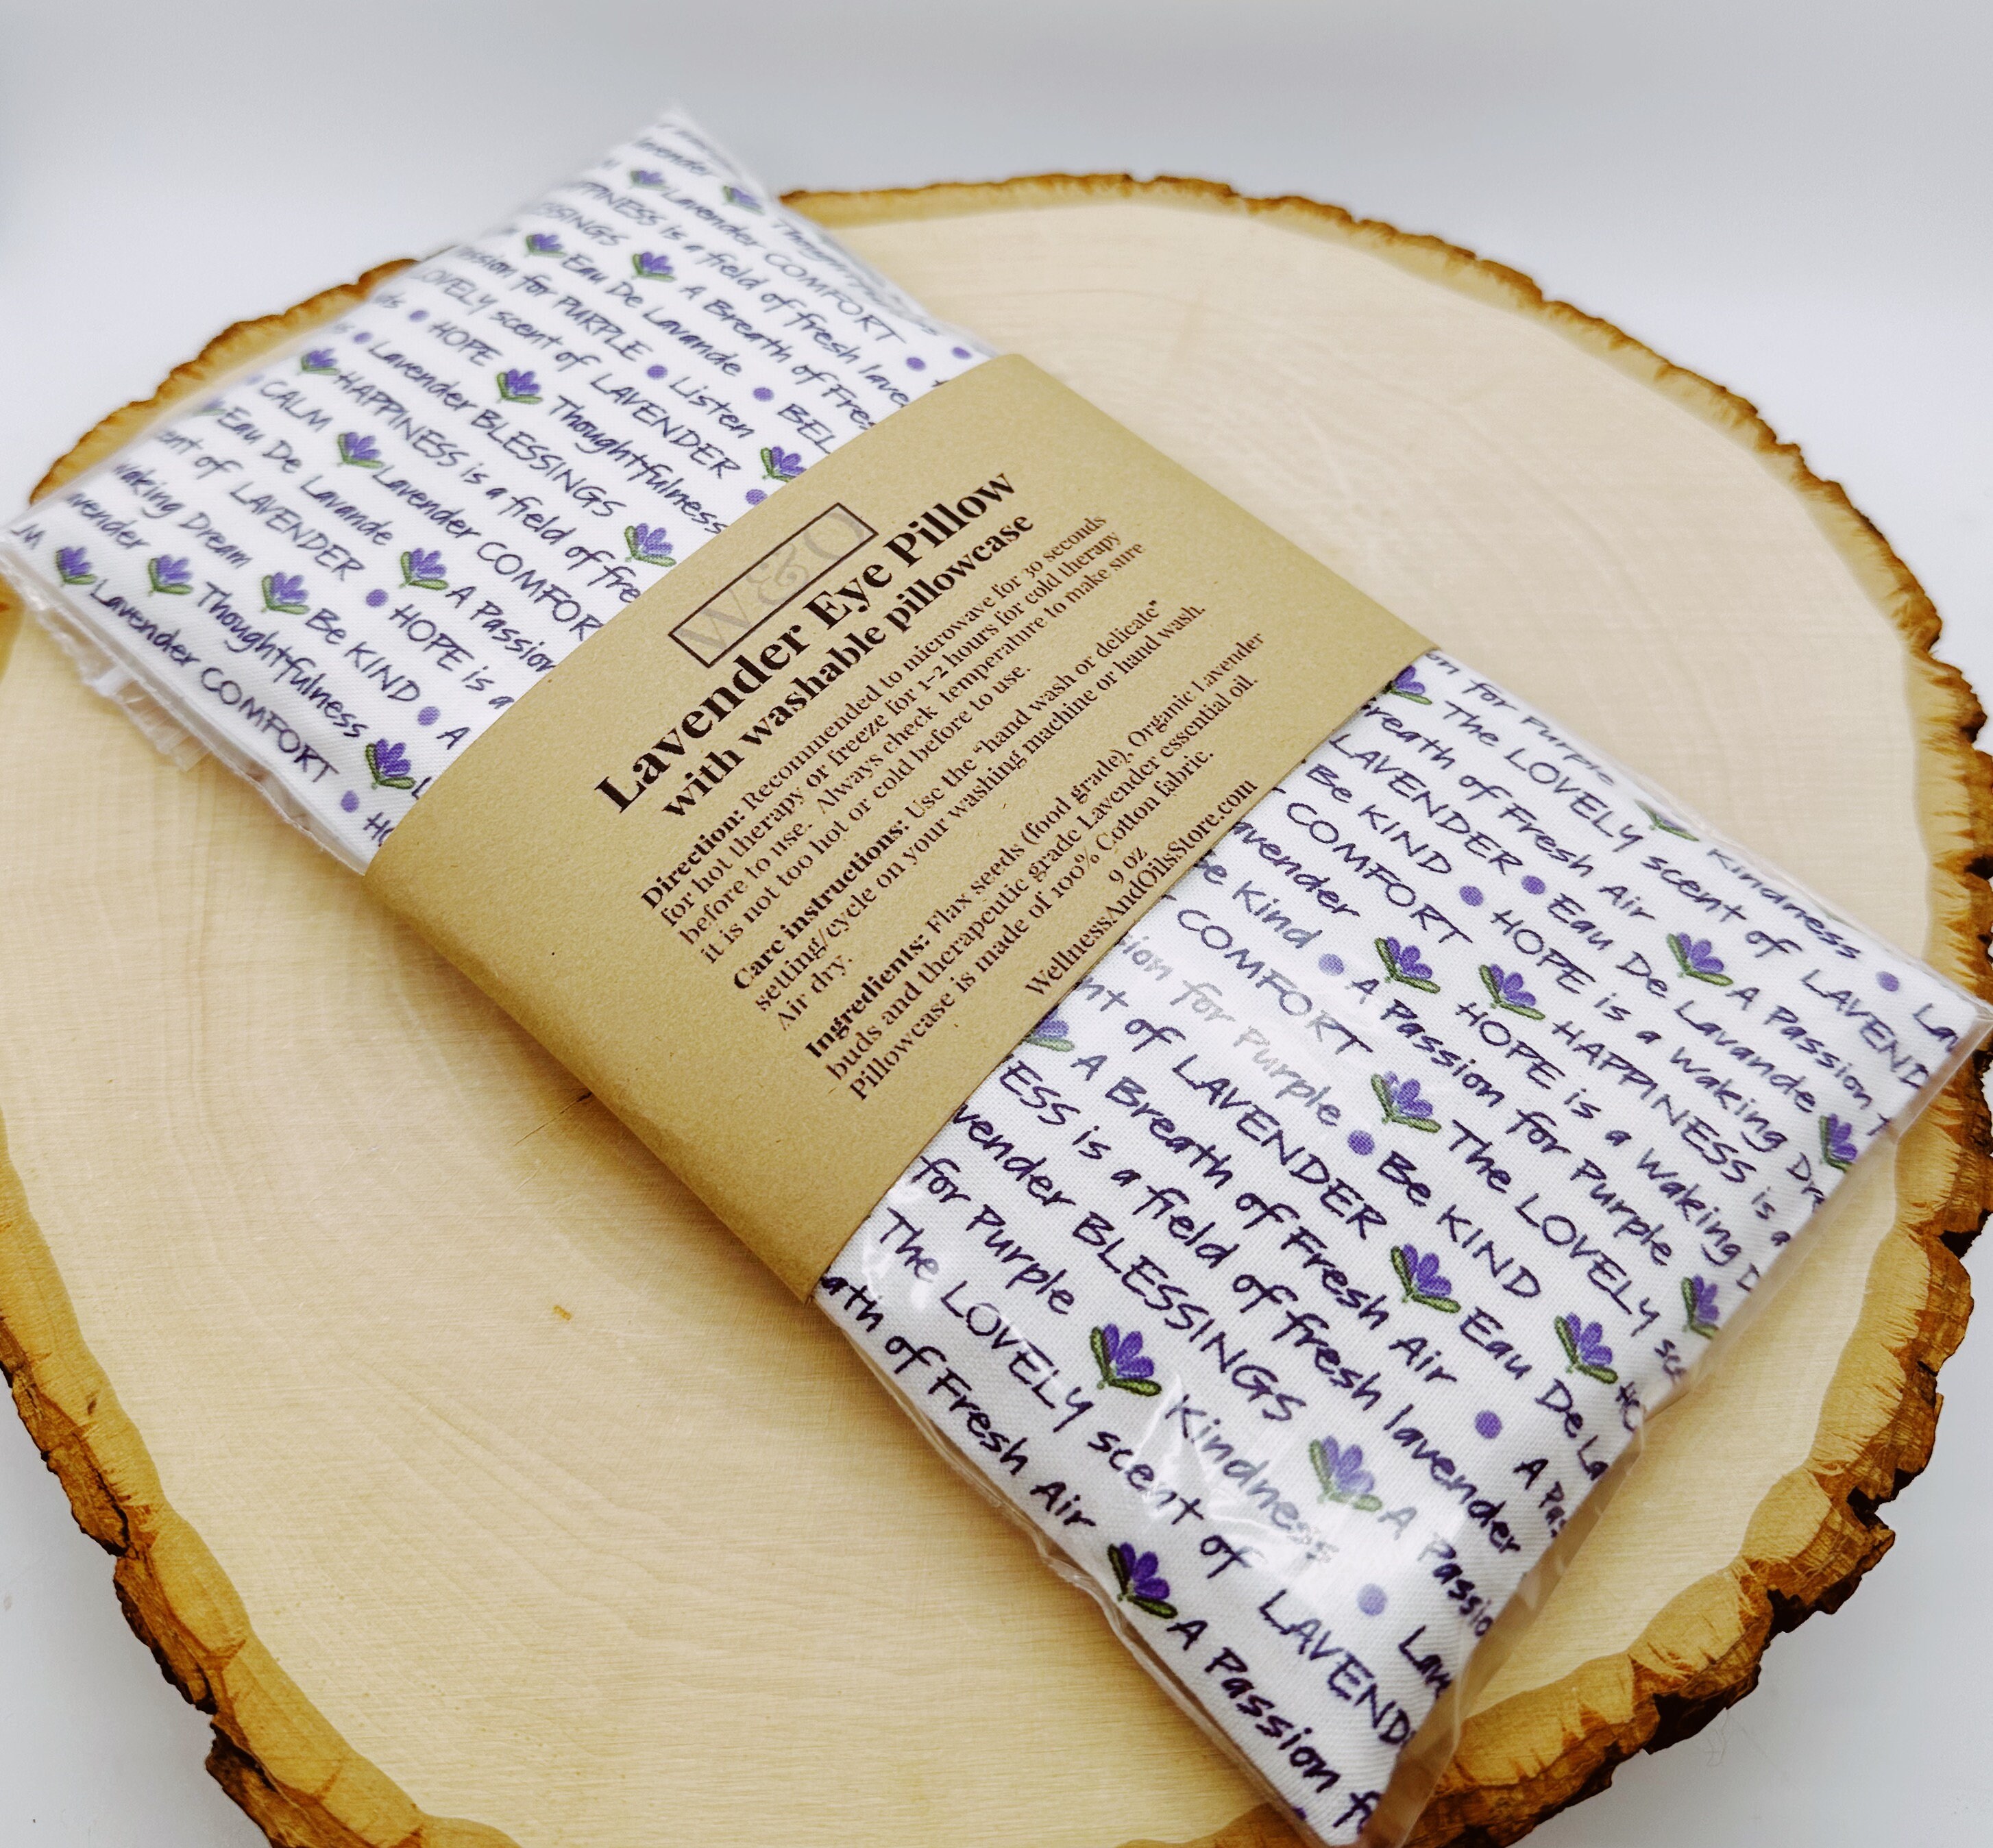 W&O
Lavender Eye Pillow
with washable pillowcase
Direction: Recommended to microwave for 30 seconds
for hot therapy or freeze for 1-2 hours for cold therapy
before to use. Always check temperature to make sure
it is not too hot or cold before to use.
Care instructions: Use the "hand wash or delicate"
setting/cycle on your washing machine or hand wash.
Air dry.
Ingredients: Flax seeds (food grade), Organic Lavender
buds and therapeutic grade Lavender essential oil.
Pillowcase is made of 100% Cotton fabric.
9 oz
WellnessAndOilsStore.com
Lavender COMFORT
HAPPINESS is a field of fresh
Eau De Lavande • BEL
A Breath of Fres
for PURPLE • Listen
LOVELY scent of LAVENDER
HOPE Thoughtfulness
Lavender BLESSINGS
HAPPINESS is a field of fre
CALM Lavender COMFOR
Eau De Lavande A Passion
of LAVENDER • HOPE is a
Waking Dream Be KIND • A
Thoughtfulness
Lavender COMFORT
for Purple Kindness • Lav
The LOVELY scent of LAVEND
Breath of Fresh Air A Passion
LAVENDER • Eau De Lavande
Be KIND • HOPE is a Waking Dr
COMFORT HAPPINESS is a
HOPE is a Waking D
Be Kind • A Passion for Purple
COMFORT The LOVELY sc
for Purple • Be KIND
of LAVENDER Eau De La
A Breath of Fresh Air • A Pas
ESS is a field of fresh lavender
Lavender BLESSINGS A Passio
for Purple Kindness • Lave
The LOVELY scent of LAVEND
ath of Fresh Air A Passion f